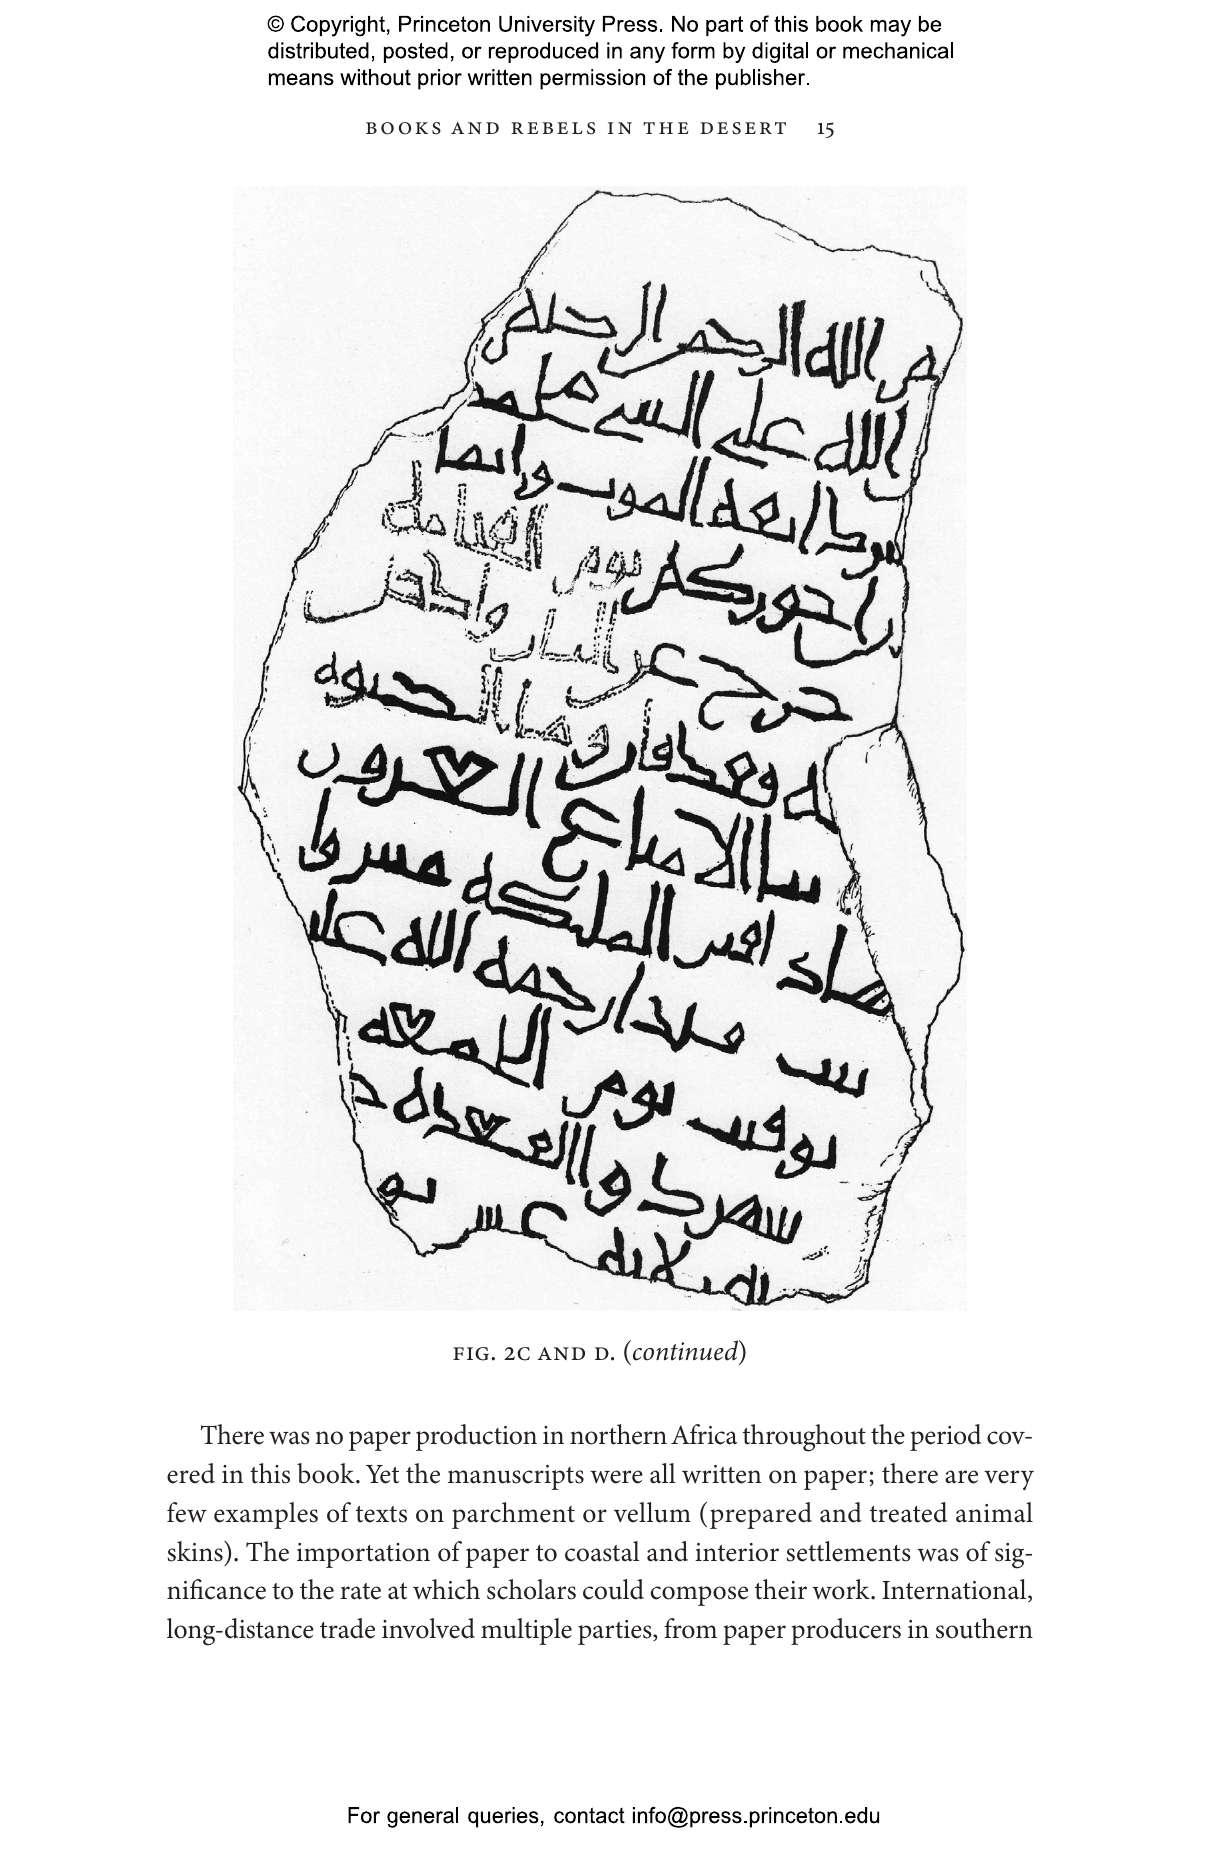 © Copyright, Princeton University Press. No part of this book may be
distributed, posted, or reproduced in any form by digital or mechanical
means without prior written permission of the publisher.
BOOKS AND REBELS IN THE DESERT 15
الله الرحمن الرحيم
الله على النبي محمد
ذائقة الموت وانما
اجوركم يوم القيامة
النار وادخل
فقد فاز وما الحيوة
الا متاع الغرور
الملئكة
رحمة الله عليه
يوم الجمعة
FIG. 2C AND D. (continued)
There was no paper production in northern Africa throughout the period cov-
ered in this book. Yet the manuscripts were all written on paper; there are very
few examples of texts on parchment or vellum (prepared and treated animal
skins). The importation of paper to coastal and interior settlements was of sig-
nificance to the rate at which scholars could compose their work. International,
long-distance trade involved multiple parties, from paper producers in southern
For general queries, contact info@press.princeton.edu